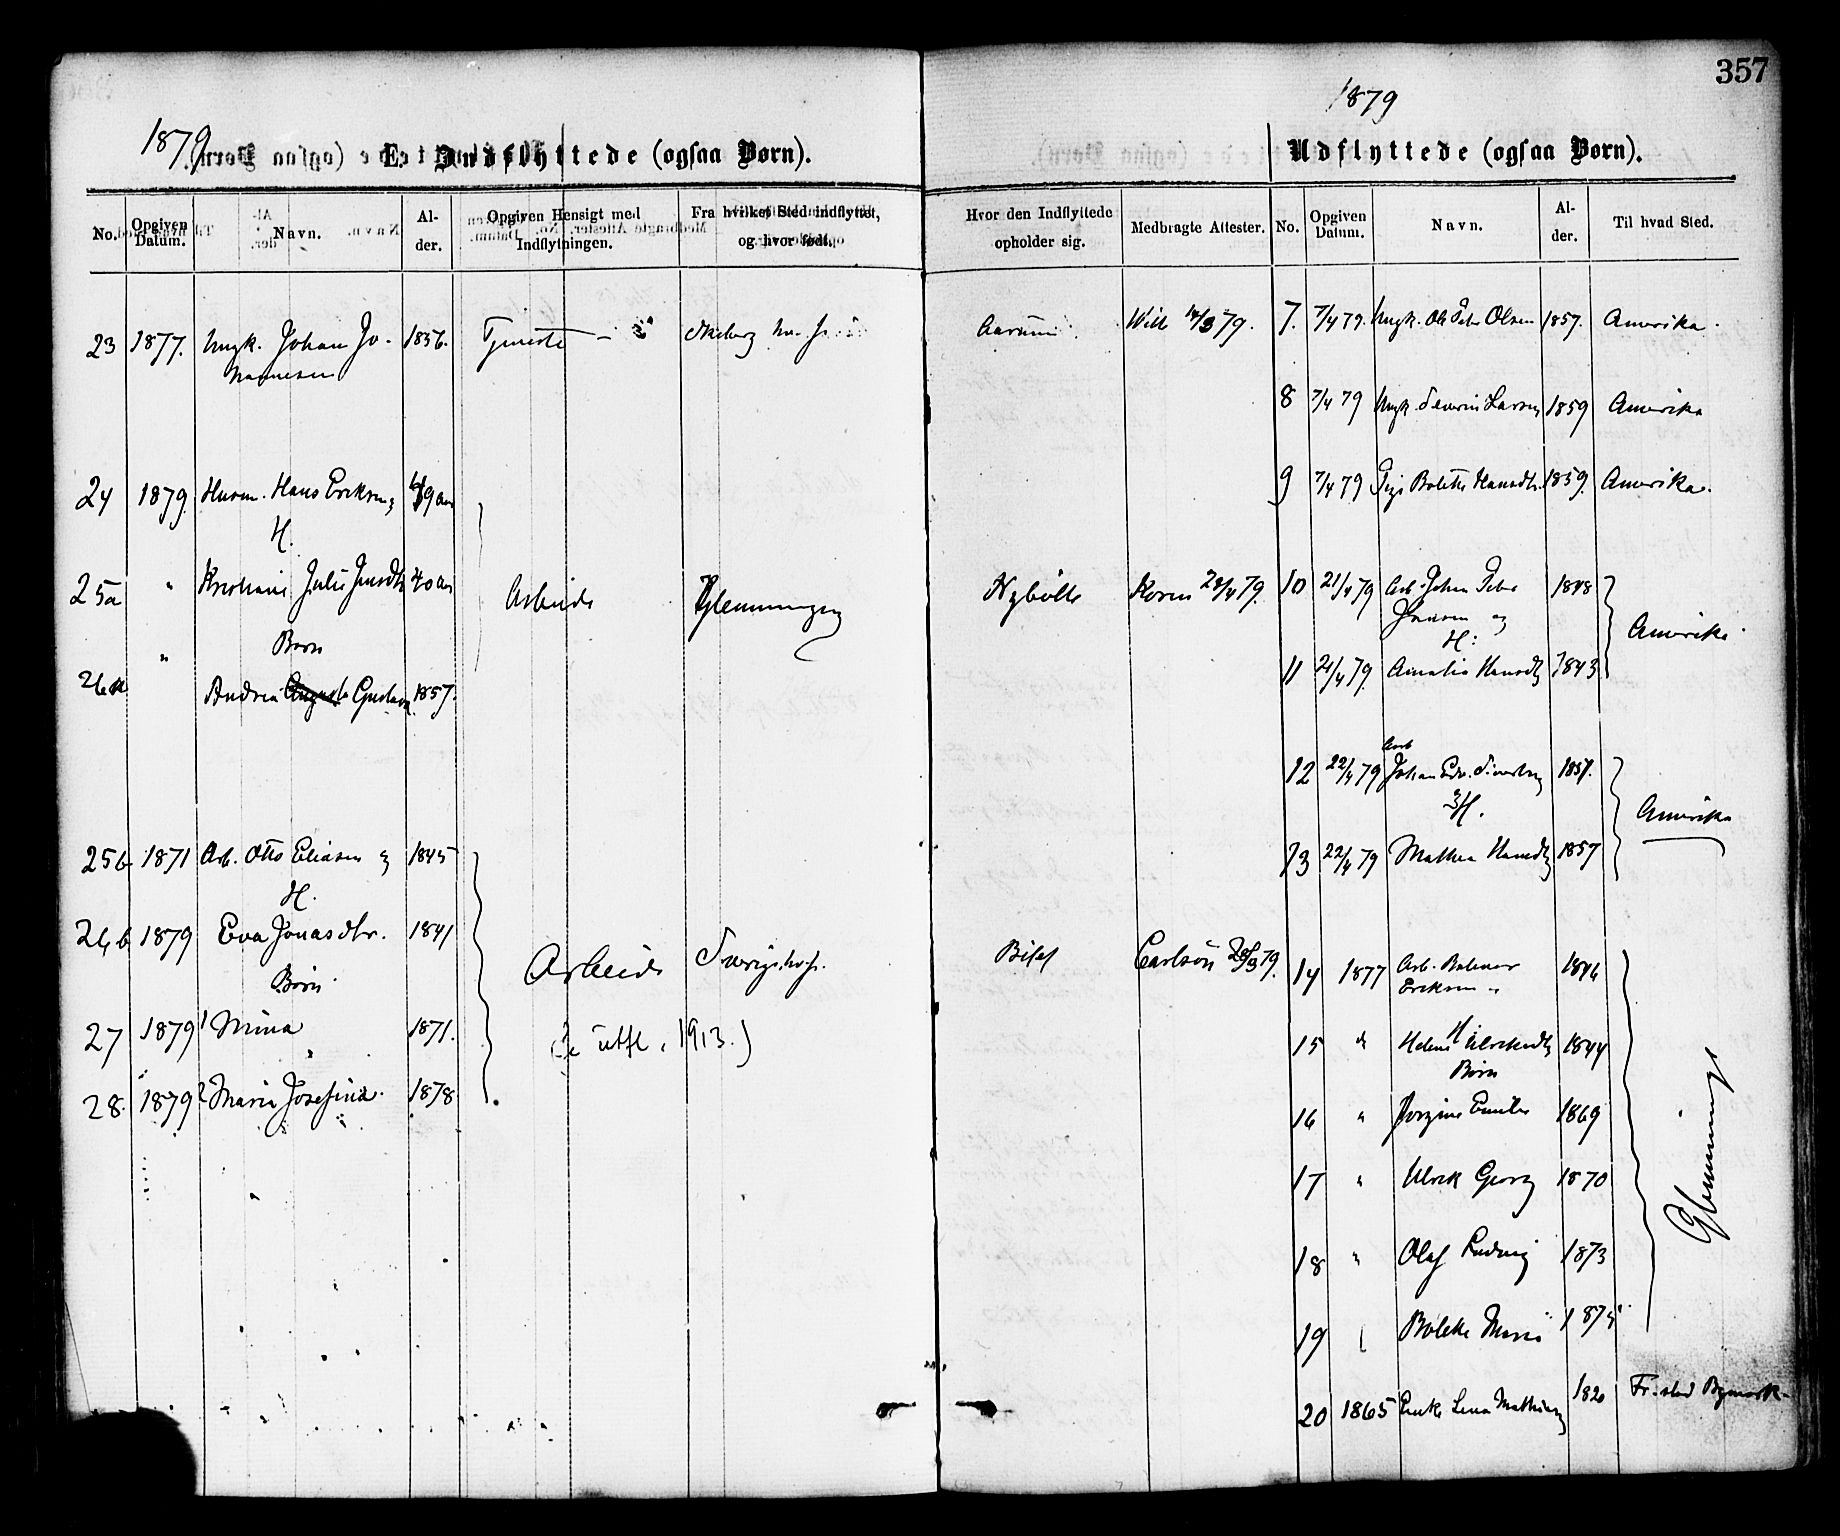 357
1879
E. Indflyttede (ogsaa Børn).
No.
Opgiven Datum.
Navn.
Al-
der.
Opgiven Hensigt med
Indflytningen.
Fra hvilket Sted indflyttet,
og hvor født.
23 1877. Ungk. Johan Jo- 1856. Tjeneste
hannesen
24 1879. Husm. Hans Eriksen 49 aar
H.
25a " Kristiane Julie 40 aar Arbeide Glemminge
Børn
26a " Andrea Gustava 1857.
25b 1871 Arb. Otto Eliasen 1845
H.
26b 1879 Eva Jonasdtr. 1841 Arbeide Sverige
Børn
27 1879 1 Mina 1871. (Se utfl. 1913.)
28. 1879 2 Maria Josefina. 1878
1879
Udflyttede (ogsaa Børn).
Hvor den Indflyttede
opholder sig.
Medbragte Attester.
No.
Opgiven Datum.
Navn.
Al-
der.
Til hvad Sted.
7. 7/4 79. Ungk. Ole Peter Olsen 1857. Amerika.
8 7/4 79 Ungk. Severin Larsen 1859 Amerika
9 7/4 79 Pige Bolette Hansdtr. 1859. Amerika.
10 21/4 79 Arb. Johan Peter 1848
Hansen og
H:
Amerika
11 21/4 79. Amalia Hansdtr 1843
Arb
12 22/4 79 Johan Edv. 1857.
H.
Amerika
13 22/4 79 Mathea Hansdtr 1857
Carlson
14 1877 Arb. 1846
Eriksen
H
15 " Helene Ulriksdtr 1844
Børn
16 " Jørgine Emilie 1869
Glemminge
17 " Ulrik Georg 1870
18 " Olaf Ludvig 1873
19 Bolette Marie 1875
20 1865 Enke Lena 1820 Fr.stad Bymark.